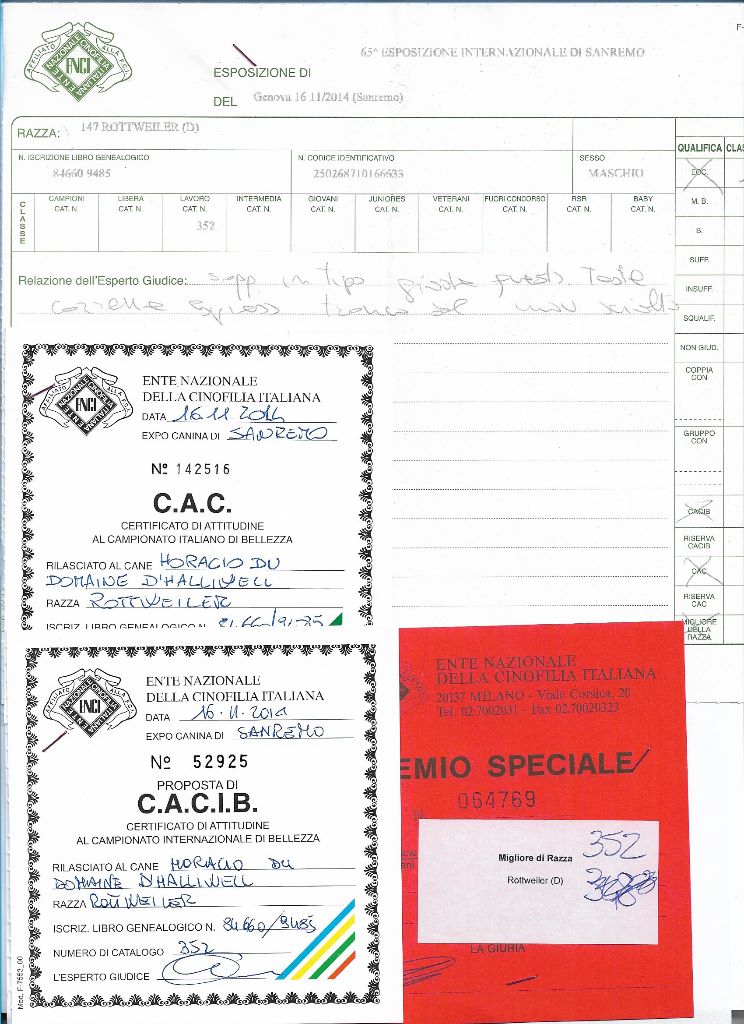 AFFILIATO ALLA F.C.I.
ENTE NAZIONALE CINOFILIA ITALIANA
ENCI
ESPOSIZIONE DI
65^ ESPOSIZIONE INTERNAZIONALE DI SANREMO
DEL
Genova 16/11/2014 (Sanremo)
RAZZA:
147 ROTTWEILER (D)
N. ISCRIZIONE LIBRO GENEALOGICO
84660 9485
N. CODICE IDENTIFICATIVO
250268710166633
SESSO
MASCHIO
CLASSE
CAMPIONI CAT. N.
LIBERA CAT. N.
LAVORO CAT. N.
352
INTERMEDIA CAT. N.
GIOVANI CAT. N.
JUNIORES CAT. N.
VETERANI CAT. N.
FUORI CONCORSO CAT. N.
RSR CAT. N.
BABY CAT. N.
Relazione dell'Esperto Giudice:
QUALIFICA
ECC.
M. B.
B.
SUFF.
INSUFF.
SQUALIF.
NON GIUD.
COPPIA CON
GRUPPO CON
CACIB
RISERVA CACIB
CAC
RISERVA CAC
MIGLIORE DELLA RAZZA
ENTE NAZIONALE
DELLA CINOFILIA ITALIANA
DATA 16.11.2014
EXPO CANINA DI SANREMO
Nº 142516
C.A.C.
CERTIFICATO DI ATTITUDINE
AL CAMPIONATO ITALIANO DI BELLEZZA
RILASCIATO AL CANE HORACIO DU
DOMAINE D'HALLIWELL
RAZZA ROTTWEILER
ISCRIZ. LIBRO GENEALOGICO N.
ENTE NAZIONALE
DELLA CINOFILIA ITALIANA
DATA 16.11.2014
EXPO CANINA DI SANREMO
Nº 52925
PROPOSTA DI
C.A.C.I.B.
CERTIFICATO DI ATTITUDINE
AL CAMPIONATO INTERNAZIONALE DI BELLEZZA
RILASCIATO AL CANE HORACIO DU
DOMAINE D'HALLIWELL
RAZZA ROTTWEILER
ISCRIZ. LIBRO GENEALOGICO N. 84660/9485
NUMERO DI CATALOGO 352
L'ESPERTO GIUDICE
Mod. F-7553_00
ENTE NAZIONALE
DELLA CINOFILIA ITALIANA
20137 MILANO - Viale Corsica, 20
Tel. 02.7002031 - Fax 02.70020323
EMIO SPECIALE
064769
Migliore di Razza 352
Rottweiler (D)
LA GIURIA